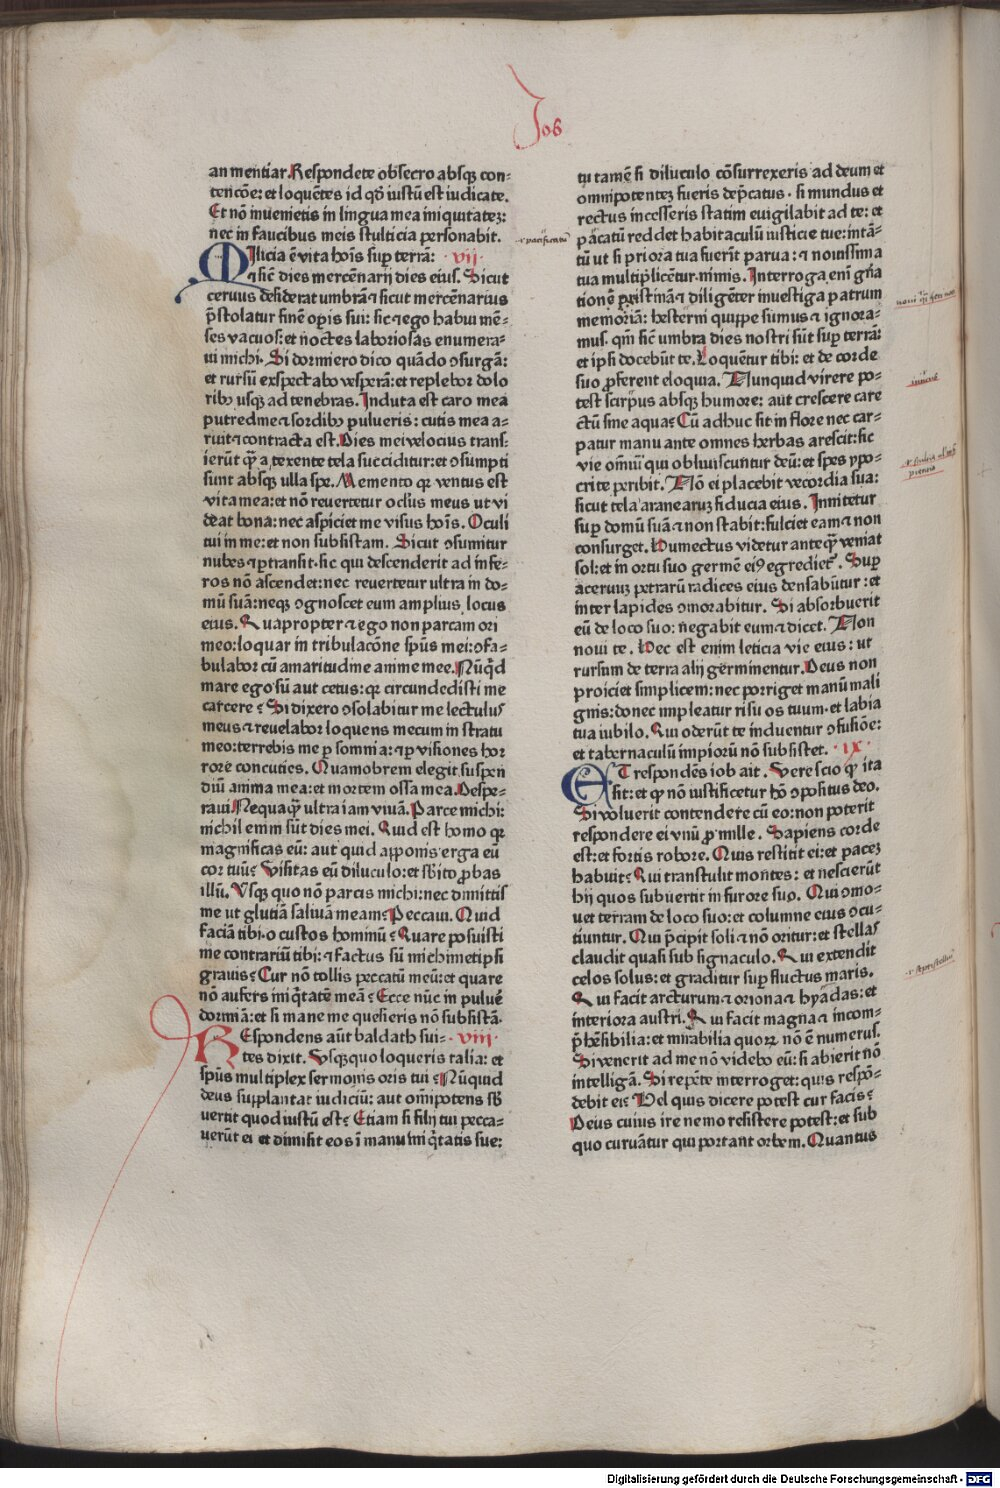 Job
an mentiar. Respondete obsecro absqꝫ con⸗
tencōe: et loquētes id qd̄ iustū est iudicate.
Et nō inuenietis in lingua mea iniquitateꝫ:
nec in faucibus meis stulticia personabit.
Milicia ē vita hoīs suꝑ terrā: ·vij·
⁊ sic̄ dies mercēnarij dies eius. Sicut
ceruus desiderat umbrā ⁊ sicut mercēnarius
p̄stolatur finē oꝑis sui: sic ⁊ ego habui mē⸗
ses vacuos: et noctes laboriosas enumera⸗
ui michi. Si dormiero dico quādo ꝯsurgā:
et rursū exspectabo vesperā: et replebor dolo
ribꝰ usqꝫ ad tenebras. Induta est caro mea
putredine ⁊ sordibꝰ pulueris: cutis mea a⸗
ruit ⁊ contracta est. Dies mei velocius trans⸗
ierūt qͣ̄ a texente tela succiditur: et ꝯsumpti
sunt absqꝫ ulla spe. Memento qꝛ ventus est
vita mea: et nō reuertetur oc̄lus meus ut vi
deat bona: nec aspiciet me visus hoīs. Oculi
tui in me: et non subsistam. Sicut ꝯsumitur
nubes ⁊ ꝑtransit. sic qui descenderit ad infe⸗
ros nō ascendet: nec reuertetur ultra in do⸗
mū suā: neqꝫ ꝯgnoscet eum amplius locus
eius. Quapropter ⁊ ego non parcam ori
meo: loquar in tribulacōne sp̄us mei: ꝯfa⸗
bulabor cū amaritudine anime mee. Nūq̇d
mare ego sū aut cetus: qꝛ circundedisti me
carcere? Si dixero ꝯsolabitur me lectulus
meus ⁊ reuelabor loquens mecum in stratu
meo: terrebis me ꝑ somnia: ⁊ ꝑ visiones hor
rore concuties. Quamobrem elegit suspen
diū anima mea: et mortem ossa mea. Despe⸗
raui Nequaqͣ̄ ultra iam viuā. Parce michi:
nichil enim sūt dies mei. Quid est homo qꝛ
magnificas eū: aut quid apponis erga eū
cor tuū? Visitas eū diluculo: et sb̄ito ꝓbas
illū. Vsqꝫ quo nō parcis michi: nec dimittis
me ut glutiā saliuā meam? Peccaui. Quid
faciā tibi. o custos hominū? Quare posuisti
me contrariū tibi: ⁊ factus sū michimetipsi
grauis? Cur nō tollis peccatū meū: et quare
nō aufers iniq̇tatē meā? Ecce nūc in puluē
dormiā: et si mane me quesieris nō subsistā.
Respondens aūt baldath sui⸗ ·viij·
tes dixit. Vsqꝫquo loqueris talia: et
sp̄us multiplex sermonis oris tui? Nūquid
deus supplantat iudiciū: aut om̄ipotens sb̄
uertit quod iustū est? Etiam si filij tui pecca⸗
uerūt ei et dimisit eos ī manu īniq̇tatis sue:
tu tamē si diluculo cōsurrexeris ad deum et
omnipotenteꝫ fueris dep̄catus. si mundus et
rectus incesseris statim euigilabit ad te: et
pacatū reddet habitaculū iusticie tue: intā⸗
tū ut si priora tua fuerīt parua: ⁊ nouissima
tua multiplicētur nimis. Interroga enī gn̄a
tionē pristinā ⁊ diligēter inuestiga patrum
memoriā: hesterni quippe sumus ⁊ ignora⸗
mus. qm̄ sic̄ umbra dies nostri sūt suꝑ terrā:
et ipsi docebūt te. Loquētur tibi: et de corde
suo ꝓferent eloquia. Nunquid virere po⸗
test scirpus absqꝫ humore: aut crescere care
ctū sine aqua? Cū adhuc sit in flore nec car⸗
patur manu ante omnes herbas arescit: sic
vie om̄iū qui obliuiscuntur deū: et spes ypo⸗
crite peribit. Nō ei placebit vecordia sua:
sicut tela aranearuꝫ fiducia eius. Innitetur
suꝑ domū suā ⁊ non stabit: fulciet eam ⁊ non
consurget. Humectus videtur anteqͣ̄ veniat
sol: et in ortu suo germē eiꝰ egrediet᷑. Suꝑ
aceruuꝫ petrarū radices eius densabūtur: et
inter lapides ꝯmorabitur. Si absorbuerit
eū de loco suo: negabit eum ⁊ dicet. Non
noui te. Hec est enim leticia vie eius: ut
rursum de terra alij germinentur. Deus non
proiciet simplicem: nec porriget manū mali
gnis: donec impleatur risu os tuum. et labia
tua iubilo. Qui oderūt te induentur ꝯfusiōe:
et tabernaculū impiorū nō subsistet. ·ix·
Et respondēs iob ait. Vere scio ꝙ ita
sit: et ꝙ nō iustificetur hō ꝯpositus deo.
Si voluerit contendere cū eo: non poterit
respondere ei vnū ꝓ mille. Sapiens corde
est: et fortis robore. Quis restitit ei: et paceꝫ
habuit? Qui transtulit montes: et nescierūt
hij quos subuertit in furore suo. Qui ꝯmo⸗
uet terram de loco suo: et columne eius ꝯcu⸗
tiuntur. Qui p̄cipit soli ⁊ nō oritur: et stellas
claudit quasi sub signaculo. Qui extendit
celos solus: et graditur suꝑ fluctus maris.
Qui facit arcturum ⁊ oriona ⁊ hyadas: et
interiora austri. Qui facit magna ⁊ incom⸗
p̄hēsibilia: et mirabilia quoꝝ nō ē numerus.
Si venerit ad me nō videbo eū: si abierit nō
intelligā. Si repēte interroget: quis respō⸗
debit ei? Vel quis dicere potest cur facis?
Deus cuius ire nemo resistere potest: et sub
quo curuātur qui portant orbem. Quantus
Digitalisierung gefördert durch die Deutsche Forschungsgemeinschaft - DFG